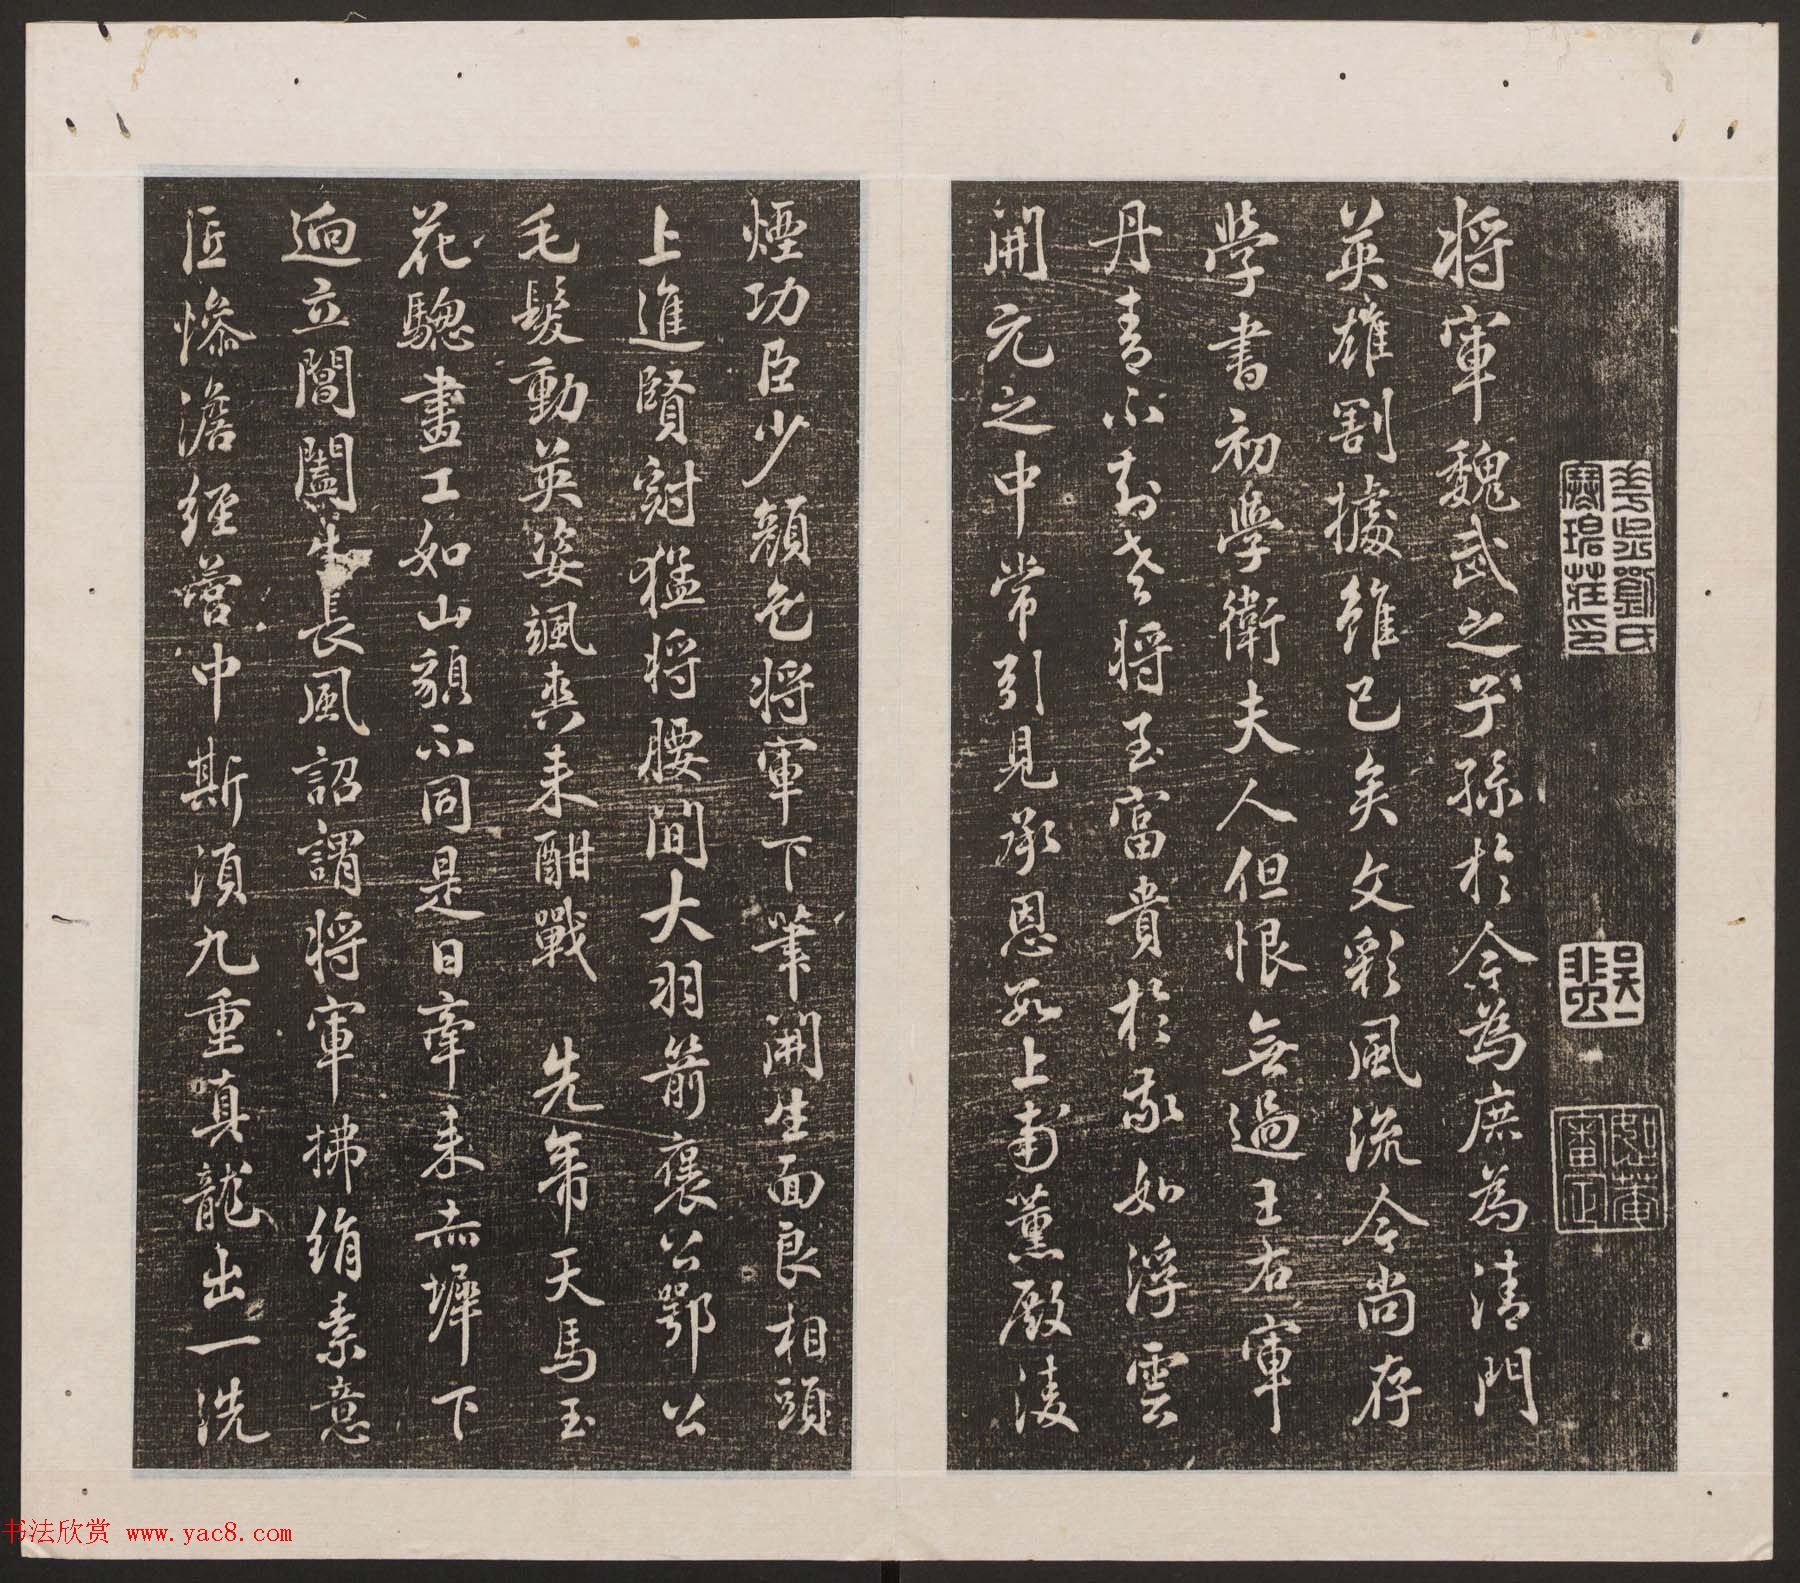 寒碧莊印
将軍魏武之子孫於今為庶為清門
英雄割據雖已矣文彩風流今尚存
學書初學衛夫人但恨無過王右軍
丹青不知老将至富貴於我如浮雲
開元之中常引見承恩數上南薰殿淩
煙功臣少顏色将軍下筆開生面良相頭
上進賢冠猛将腰間大羽箭褒公鄂公
毛髮動英姿颯爽来酣戰 先帝天馬玉
花驄畫工如山貌不同是日牽来赤墀下
迥立閶闔生長風詔謂将軍拂絹素意
匠慘澹經營中斯須九重真龍出一洗
书法欣赏 www.yac8.com